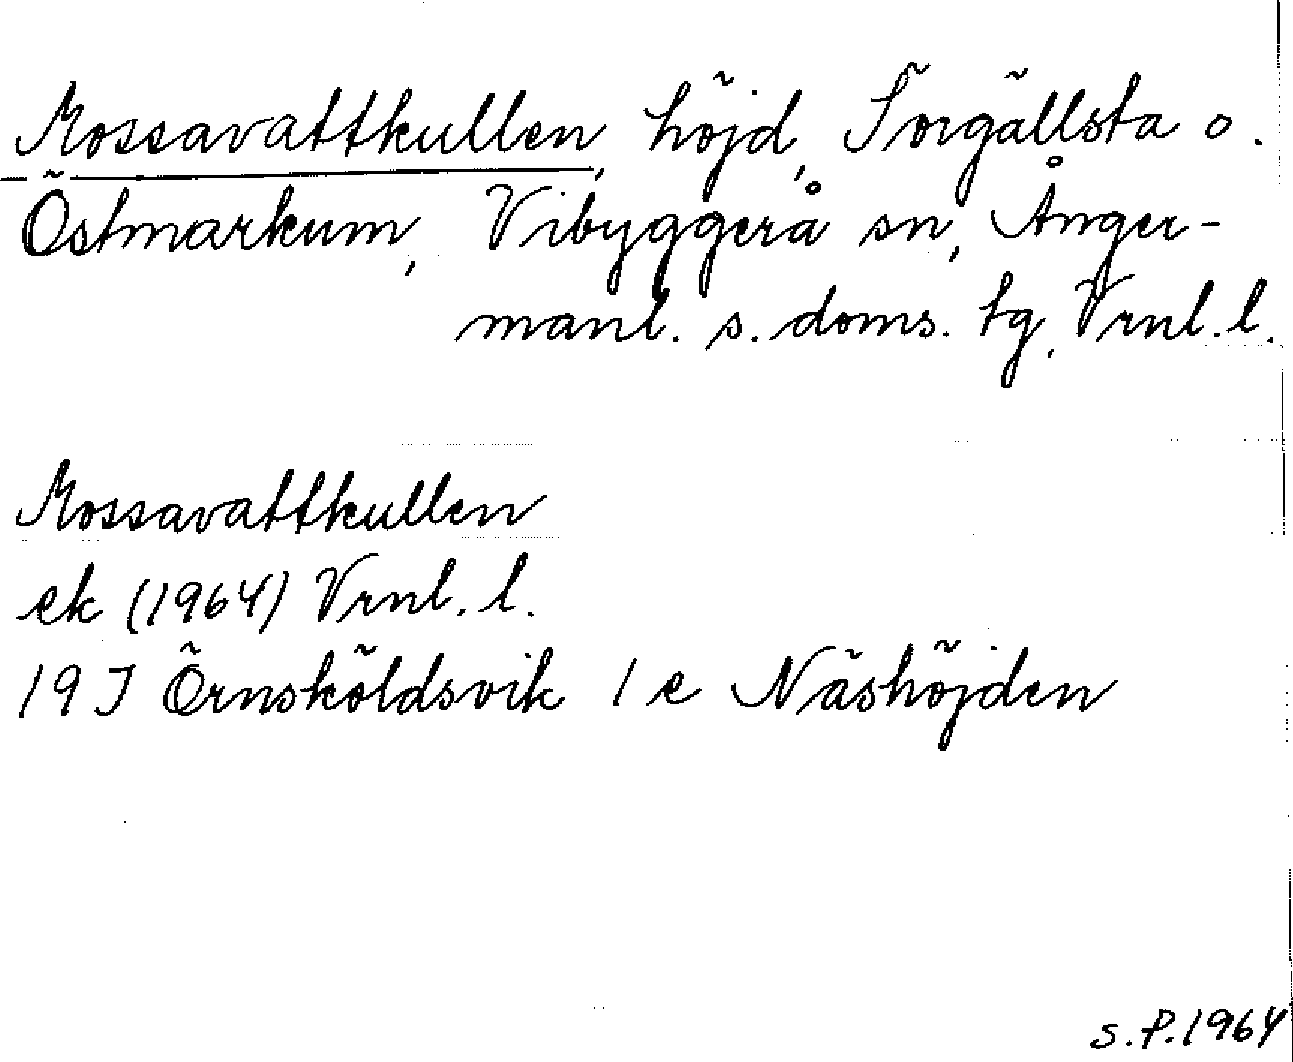 Mossavattkullen, höjd, Torgällsta o.
Östmarkum, Vibyggerå sn, Ånger-
manl. s. doms. tg, Vrnl. l.
Mossavattkullen
ek (1964) Vrnl. l.
19 J Örnsköldsvik 1 e Näshöjden
S.P.1964